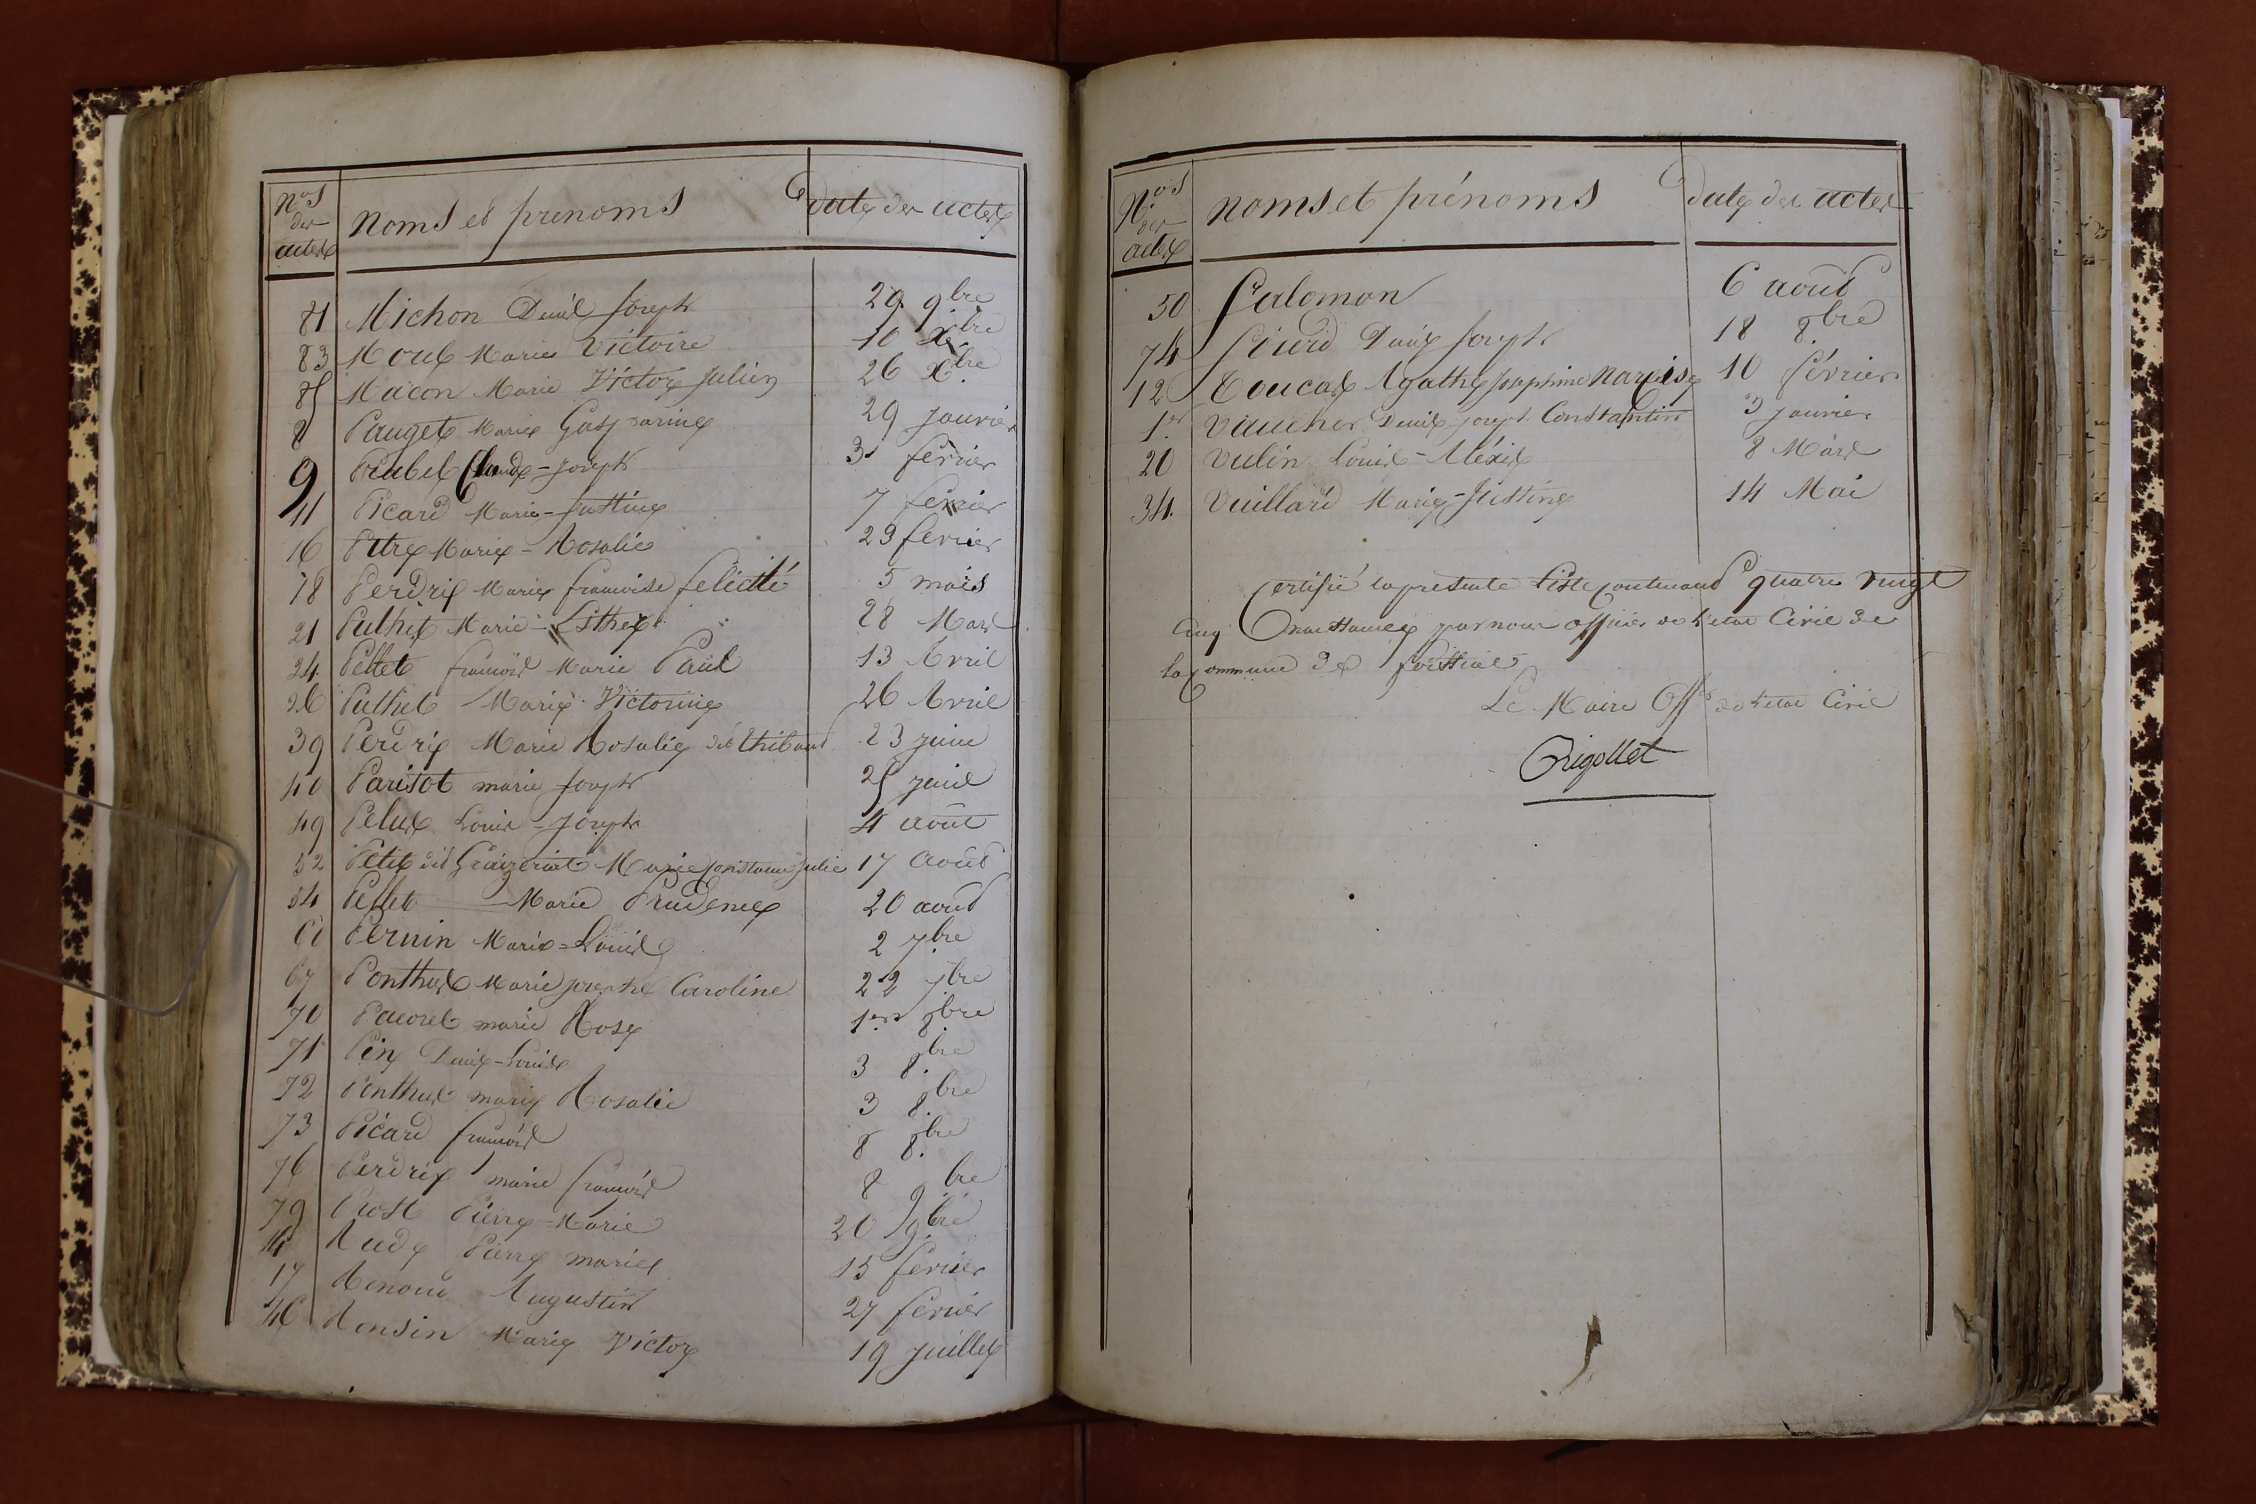 Nos des actes
noms et prenoms
date des actes
81 Michon Denis Joseph 29 9bre
83 Moux Marie Victoire 10 Xbre
85 Macon Marie Victor Julien 26 Xbre
8 Pauget Marie Gasparine 29 janvier
9 Claude-Joseph 3 fevrier
11 Picard Marie-Justine 7 fevrier
16 Petre Marie-Rosalie 23 fevrier
18 Perdrix Marie francoise felicité 5 mars
21 Puthet Marie-Esther 28 Mars
24 Pellet francois Marie Paul 13 Avril
26 Puthet Marie Victorine 26 Avril
39 Perdrix Marie Rosalie dit thibaud 23 juin
40 Parisot marie Joseph 25 juin
49 Pelux Louis-Joseph 4 août
52 Petit dit Marie constance julie 17 août
54 Pellet Marie Prudence 20 août
61 Pernin Marie-Louise 2 7bre
67 Ponthus Marie Caroline 22 7bre
70 Pacoret marie Rose 1er 8bre
71 Pin Denis-Louis 3 8bre
72 Ponthus marie Rosalie 3 8bre
73 Picard francois 8 8bre
76 Perdrix marie francois 8 9bre
79 Prost Pierre-Marie 20 9bre
14 Rude Pierre marie 15 fevrier
17 Renoud Augustin 27 fevrier
46 Ronsin Marie Victor 19 juillet
Nos des actes
noms et prénoms
date des actes
50 Salomon 6 août
74 Denis Joseph 18 8bre
12 Toucas Agathe Josephine Narcise 10 février
1er Vaucher Denis joseph Constantin 3 janvier
20 Vulin Louis-Aléxis 8 Mars
34 Vuillard Marie-Justine 14 Mai
Certifié la presente Liste contenant quatre vingt
cinq Naissances par nous officier de l'etat Civil de
la commune de foissiat
Le Maire Offr de l'etat Civil
Rigollet